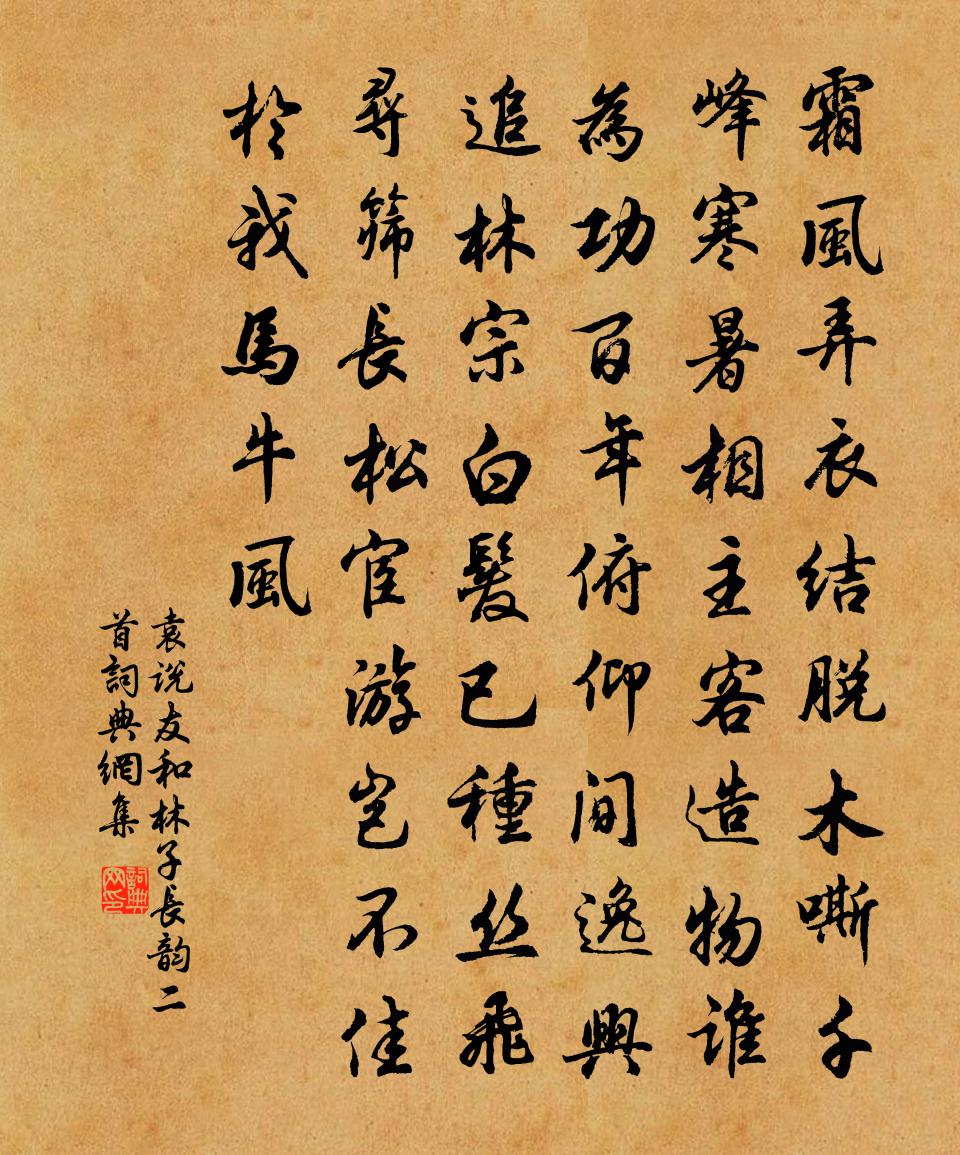 霜風弄衣结脱木嘶千
峰寒暑相主客造物谁
為功百年俯仰间逸興
追林宗白髮已種丝飛
尋篩長松宦游岂不佳
於我馬牛風
袁说友和林子長韵二
首詞典網集
詞典网印